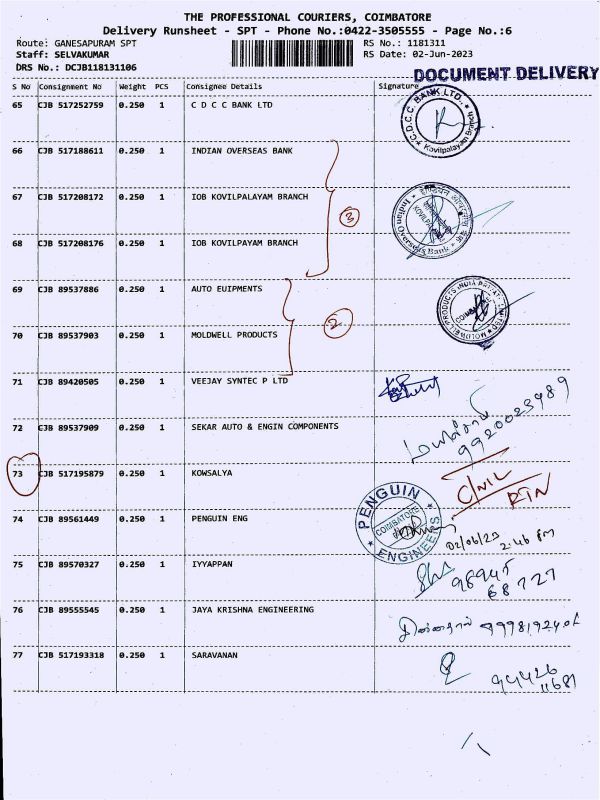 THE PROFESSIONAL COURIERS, COIMBATORE
Delivery Runsheet - SPT - Phone No.:0422-3505555 - Page No.:6
Route: GANESAPURAM SPT
RS No.: 1181311
Staff: SELVAKUMAR
RS Date: 02-Jun-2023
DRS No.: DCJB118131106
DOCUMENT DELIVERY
S No Consignment No Weight PCS Consignee Details Signature
65 CJB 517252759 0.250 1 C D C C BANK LTD
C.D.C.C. BANK LTD., Kovilpalayam Branch
66 CJB 517188611 0.250 1 INDIAN OVERSEAS BANK
67 CJB 517208172 0.250 1 IOB KOVILPALAYAM BRANCH
3
Indian Overseas Bank
68 CJB 517208176 0.250 1 IOB KOVILPAYAM BRANCH
69 CJB 89537886 0.250 1 AUTO EUIPMENTS
2
MOLDWELL PRODUCTS INDIA PRIVATE LIMITED
COIMBATORE
70 CJB 89537903 0.250 1 MOLDWELL PRODUCTS
71 CJB 89420505 0.250 1 VEEJAY SYNTEC P LTD
72 CJB 89537909 0.250 1 SEKAR AUTO & ENGIN COMPONENTS
9920023989
73 CJB 517195879 0.250 1 KOWSALYA
C/NIL
RTN
74 CJB 89561449 0.250 1 PENGUIN ENG
PENGUIN ENGINEERS
COIMBATORE
02/06/23
2:46 PM
75 CJB 89570327 0.250 1 IYYAPPAN
98945
68727
76 CJB 89555545 0.250 1 JAYA KRISHNA ENGINEERING
77 CJB 517193318 0.250 1 SARAVANAN
94426
11681